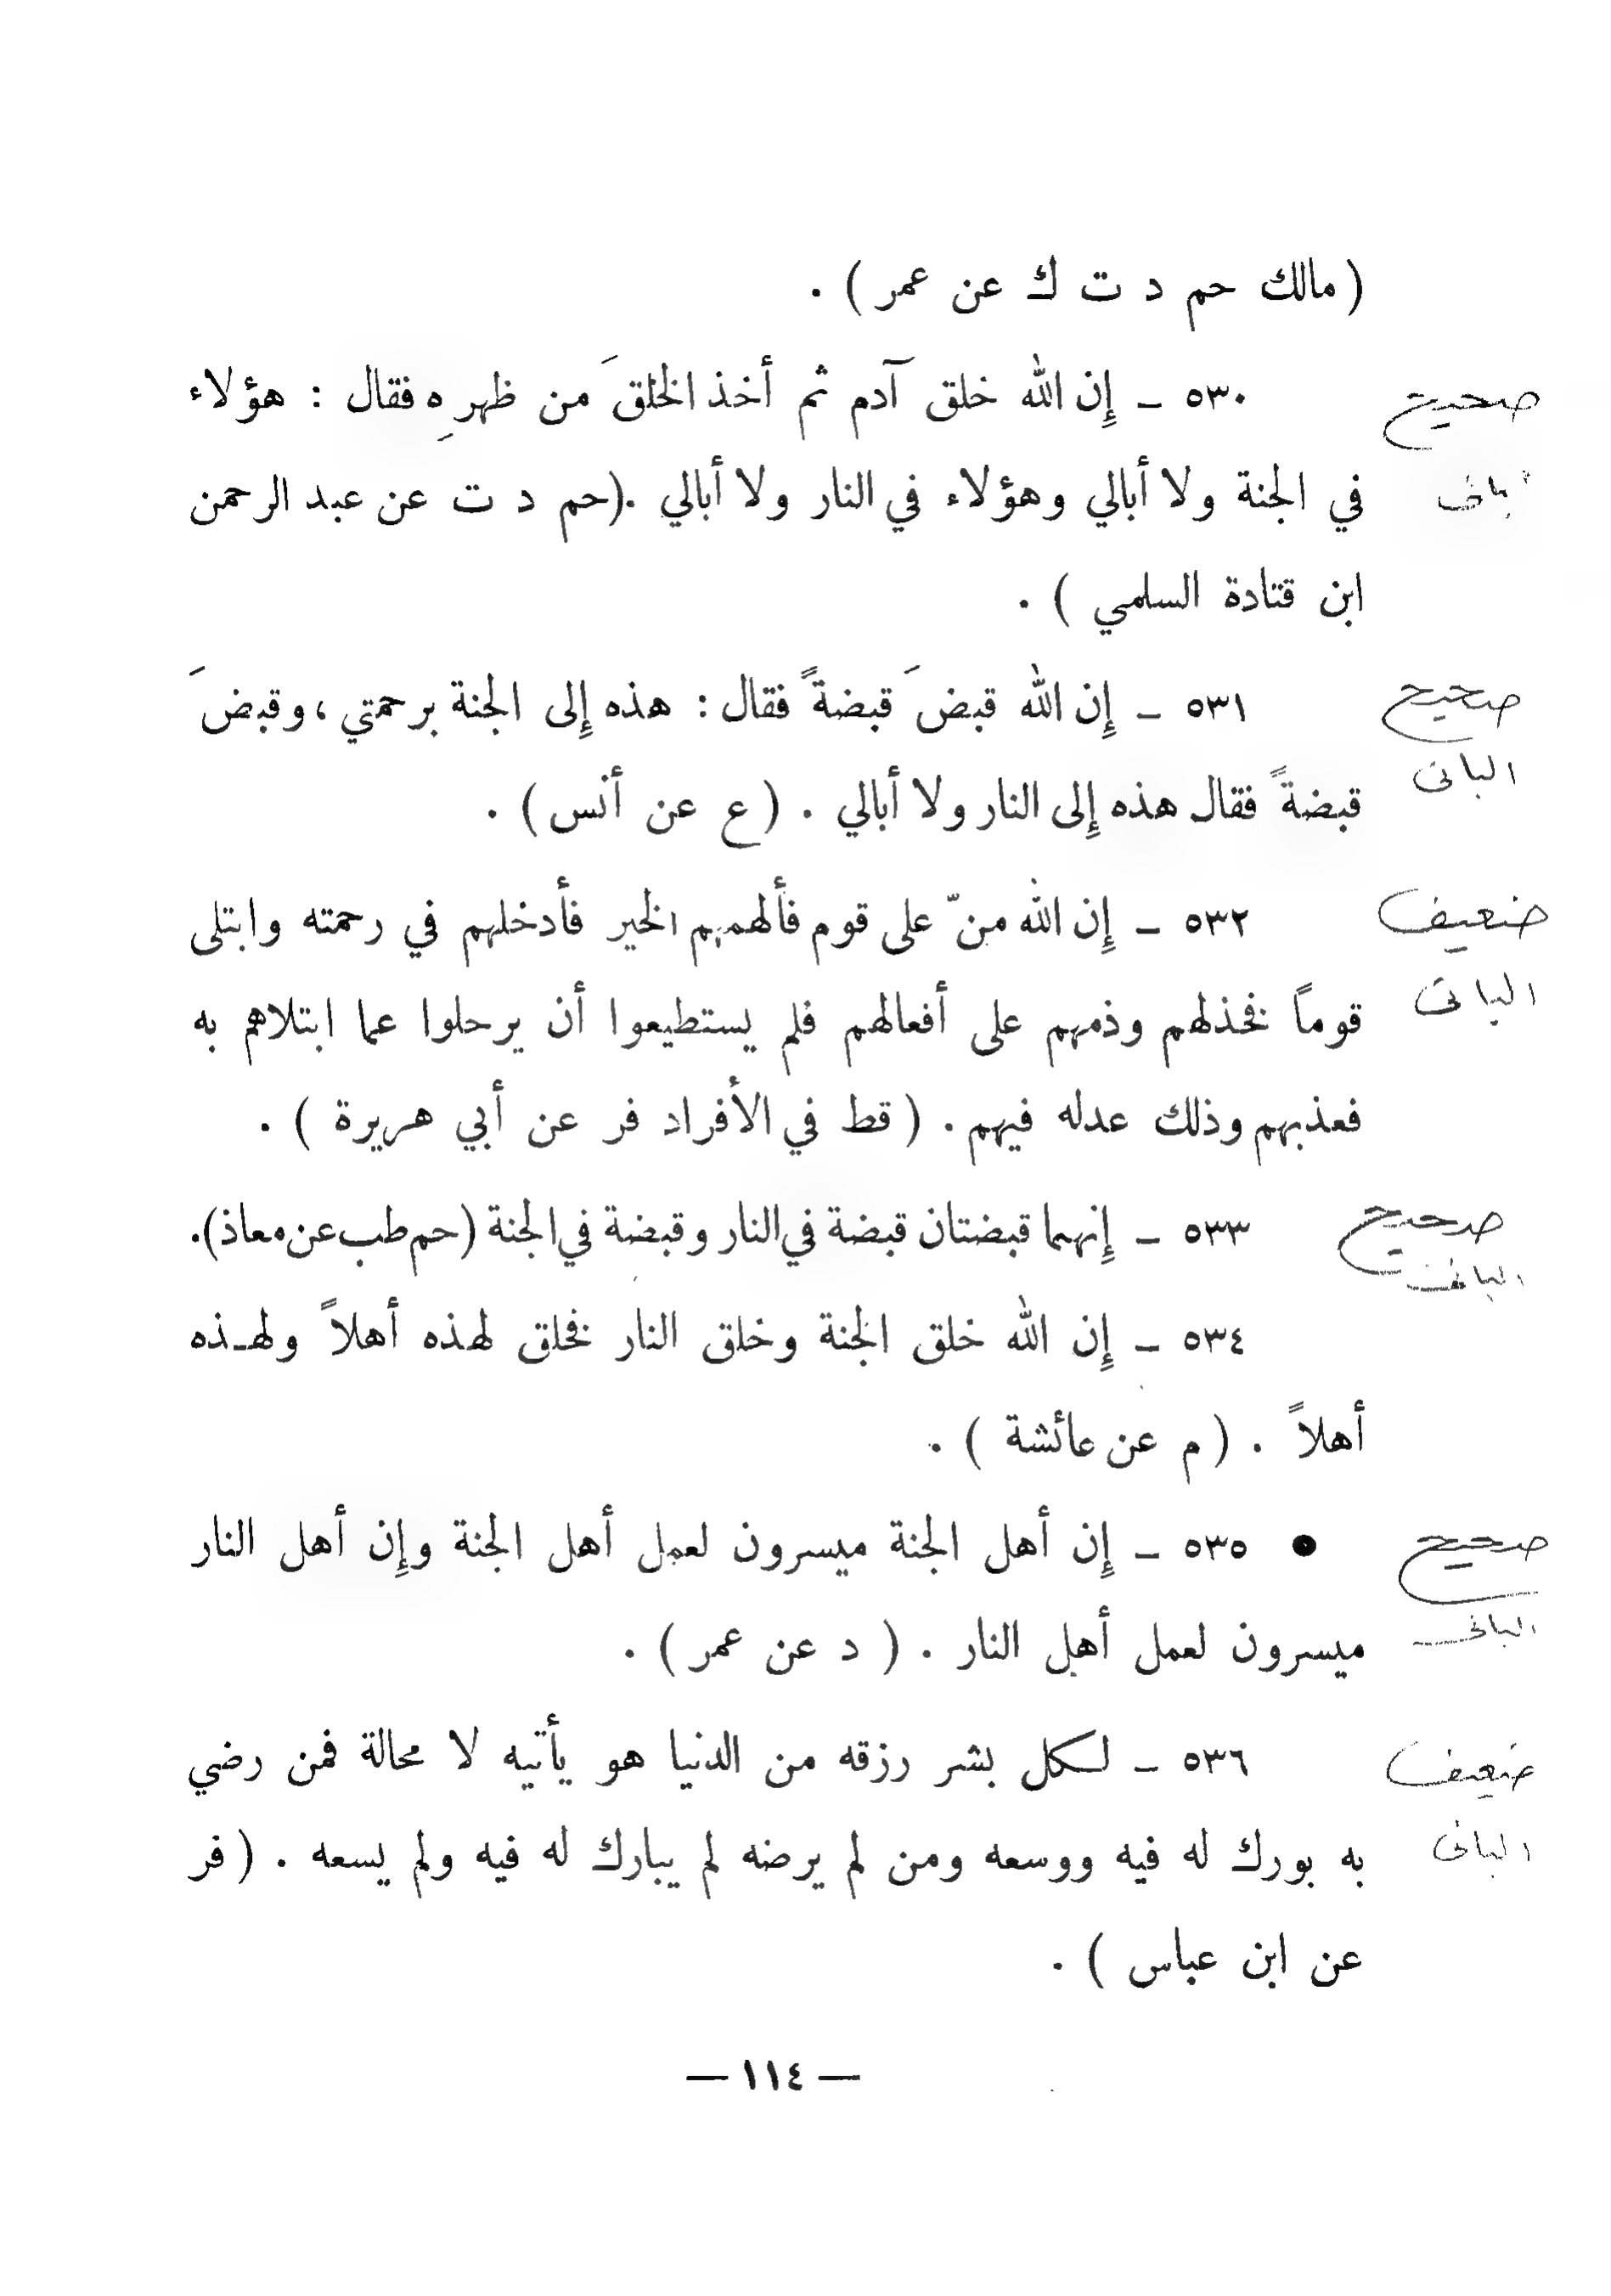 ( مالك حم د ت ك عن عمر ) .
صحيح
٥٣٠ ـ إِن الله خلق آدم ثم أخذ الخلقَ من ظهرِه فقال : هؤلاء
في الجنة ولا أبالي وهؤلاء في النار ولا أبالي .(حم د ت عن عبد الرحمن
ابن قتادة السلمي ) .
صحيح
٥٣١ ـ إِن الله قبضَ قبضةً فقال : هذه إِلى الجنة برحمتي ، وقبضَ
البانى
قبضةً فقال هذه إِلى النار ولا أبالي . ( ع عن أنس ) .
ضعيف
٥٣٢ ـ إِن الله منّ على قوم فألهمهم الخير فأدخلهم في رحمته وابتلى
البانى
قوماً فخذلهم وذمهم على أفعالهم فلم يستطيعوا أن يرحلوا عما ابتلاهم به
فعذبهم وذلك عدله فيهم . ( قط في الأفراد فر عن أبي هريرة ) .
صحيح
٥٣٣ ـ إِنهما قبضتان قبضة في النار وقبضة في الجنة (حم طب عن معاذ).
البانى
٥٣٤ ـ إِن الله خلق الجنة وخلق النار فخلق لهذه أهلاً ولهـذه
أهلاً . ( م عن عائشة ) .
صحيح
● ٥٣٥ ـ إِن أهل الجنة ميسرون لعمل أهل الجنة وإِن أهل النار
البانى
ميسرون لعمل أهل النار . ( د عن عمر ) .
ضعيف
٥٣٦ ـ لـكل بشر رزقه من الدنيا هو يأتيه لا محالة فمن رضي
البانى
به بورك له فيه ووسعه ومن لم يرضه لم يبارك له فيه ولم يسعه . ( فر
عن ابن عباس ) .
— ١١٤ —